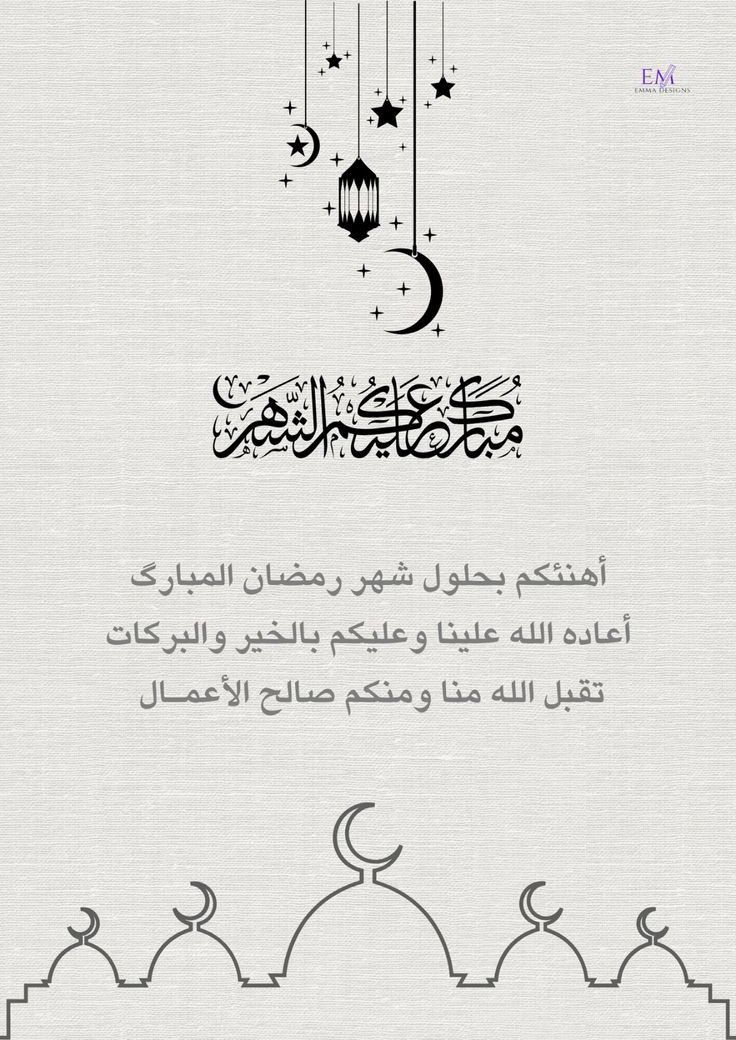 EM
EMMA DESIGNS
مُبَارَكٌ عَلَيْكُمُ الشَّهْر
أهنئكم بحلول شهر رمضان المبارگ
أعاده الله علينا وعليكم بالخير والبركات
تقبل الله منا ومنكم صالح الأعمــال